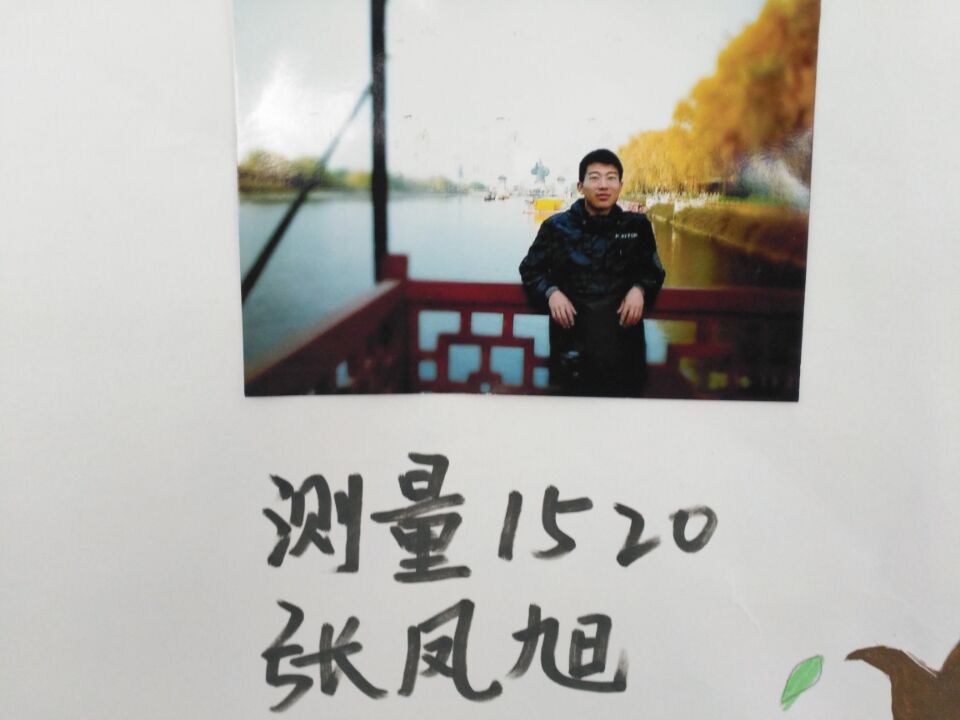 测量1520
张凤旭